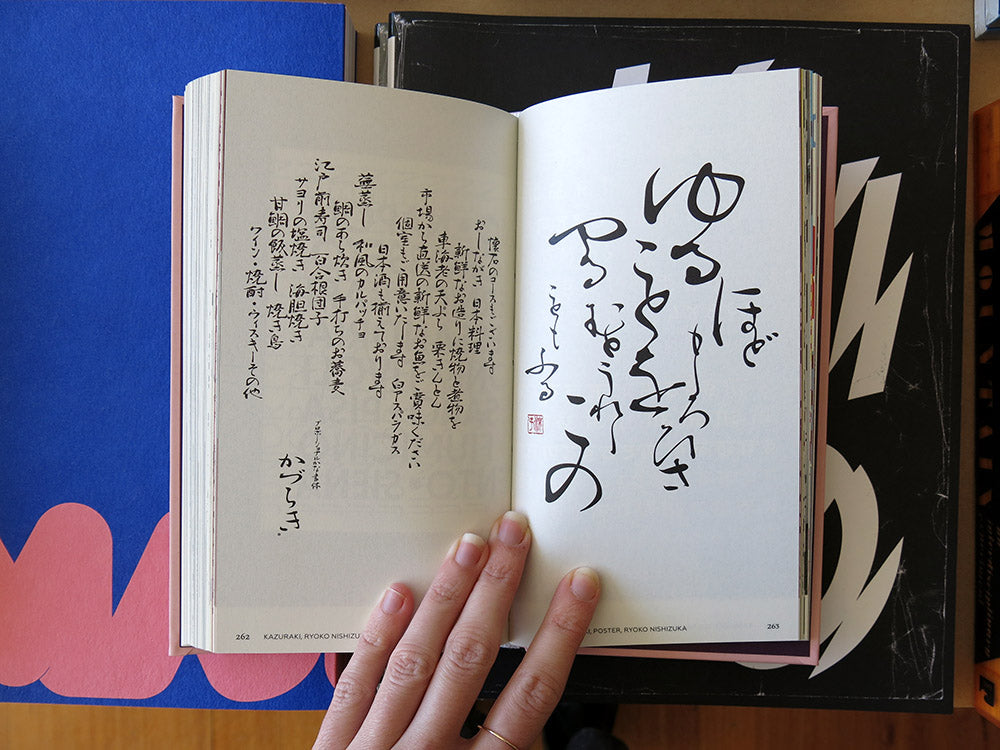 懐石のコースもございます
おしながき 日本料理
新鮮なお造りに焼物と煮物を
車海老の天ぷら 栗きんとん
市場から直送の新鮮なお魚をご賞味ください
個室もご用意いたします 白アスパラガス
日本酒も揃えております
蓮蒸し 和風のカルパッチョ
鯛のあら炊き 手打ちのお蕎麦
江戸前寿司 百合根団子
サヨリの塩焼き 海胆焼き
甘鯛の飯蒸し 焼き鳥
ワイン・焼酎・ウィスキーその他
プロポーショナルかな書体
かづらき
262 KAZURAKI, RYOKO NISHIZU
ほど
ゆる
ことを
この
POSTER, RYOKO NISHIZUKA 263